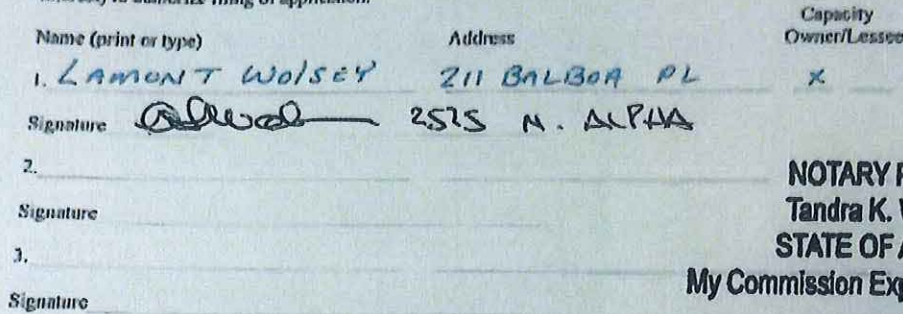 Capacity
Name (print or type) Address Owner/Lessee
1. LAMONT WOLSEY 211 BALBOA PL X
Signature 2525 N. ALPHA
2.
NOTARY
Signature Tandra K.
3. STATE OF
My Commission Exp
Signature